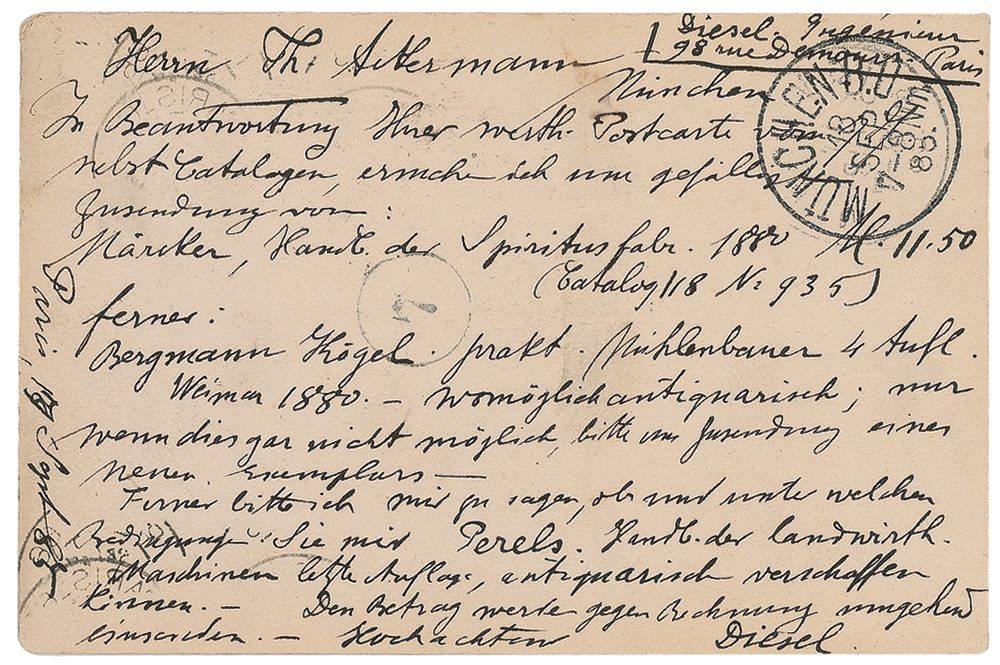 Diesel. Ingénieur
98 rue Demours. Paris
Herrn Th. Ackermann
München
In Beantwortung Ihrer werth. Postcarte vom
nebst Catalogen, ersuche ich um gefällige
Zusendung von:
Märcker, Handb. der Spiritusfabr. 1880 M. 11.50
(Catalog 118 No 935)
ferner:
Bergmann Kögel. prakt. Mühlenbauer 4 Aufl.
Weimar 1880. — womöglich antiquarisch; nur
wenn dies gar nicht möglich, bitte um Zusendung eines
neuen Exemplars —
Ferner bitte ich mir zu sagen, ob und unter welchen
Bedingungen Sie mir Perels. Handb. der landwirth.
Maschinen letzte Auflage, antiquarisch verschaffen
können. — Den Betrag werde gegen Rechnung umgehend
einsenden. — Hochachtend Diesel
Paris, 18 Sept 85
MÜNCHEN
SEP.
7-8 NM
85.
7